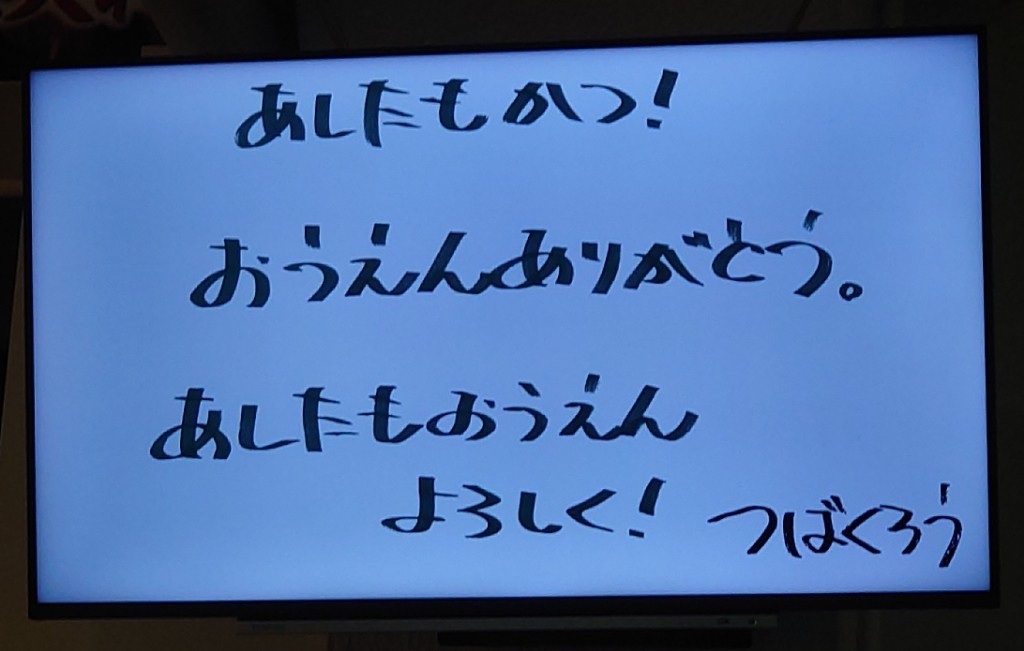 あしたもかつ!
おうえんありがとう。
あしたもおうえん
よろしく!
つばくろう